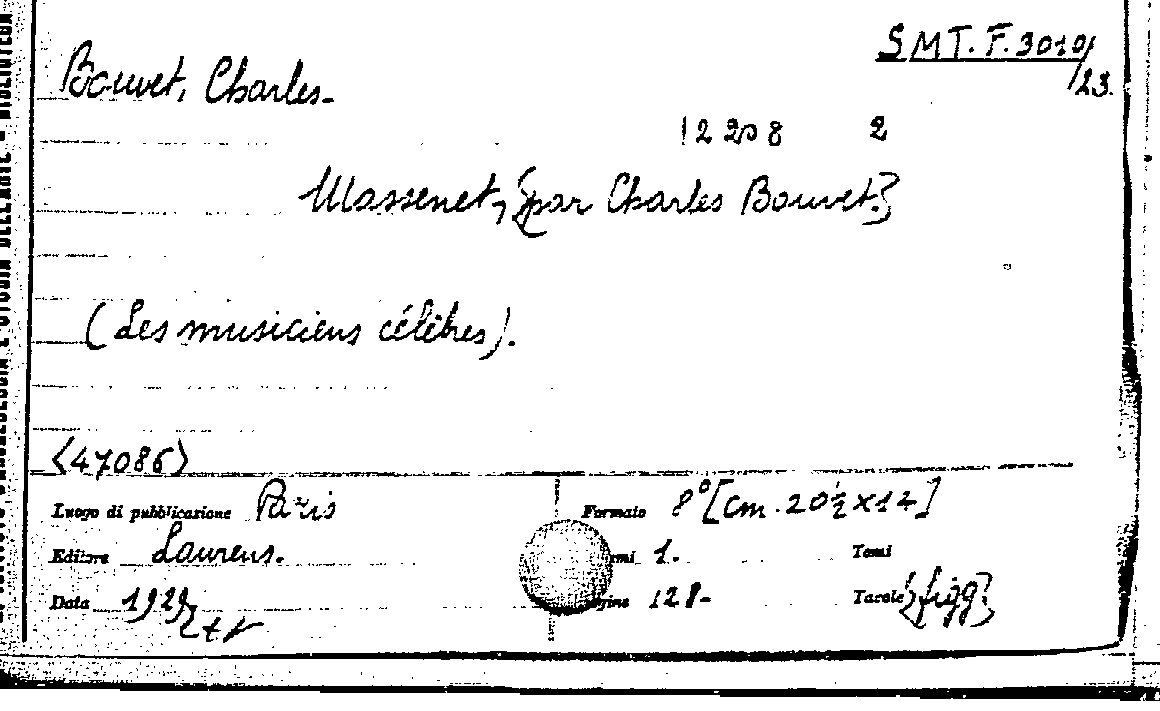 SMT. F. 3010/23.
Bouvet, Charles.
12208 2
Massenet, {par Charles Bouvet.}
(Les musiciens célèbres).
<47086>
Luogo di pubblicazione Paris Formato 8° [cm. 20½ x 14]
Editore Laurens. 1. Tomi
Data 1929 128. Tavole {figg}